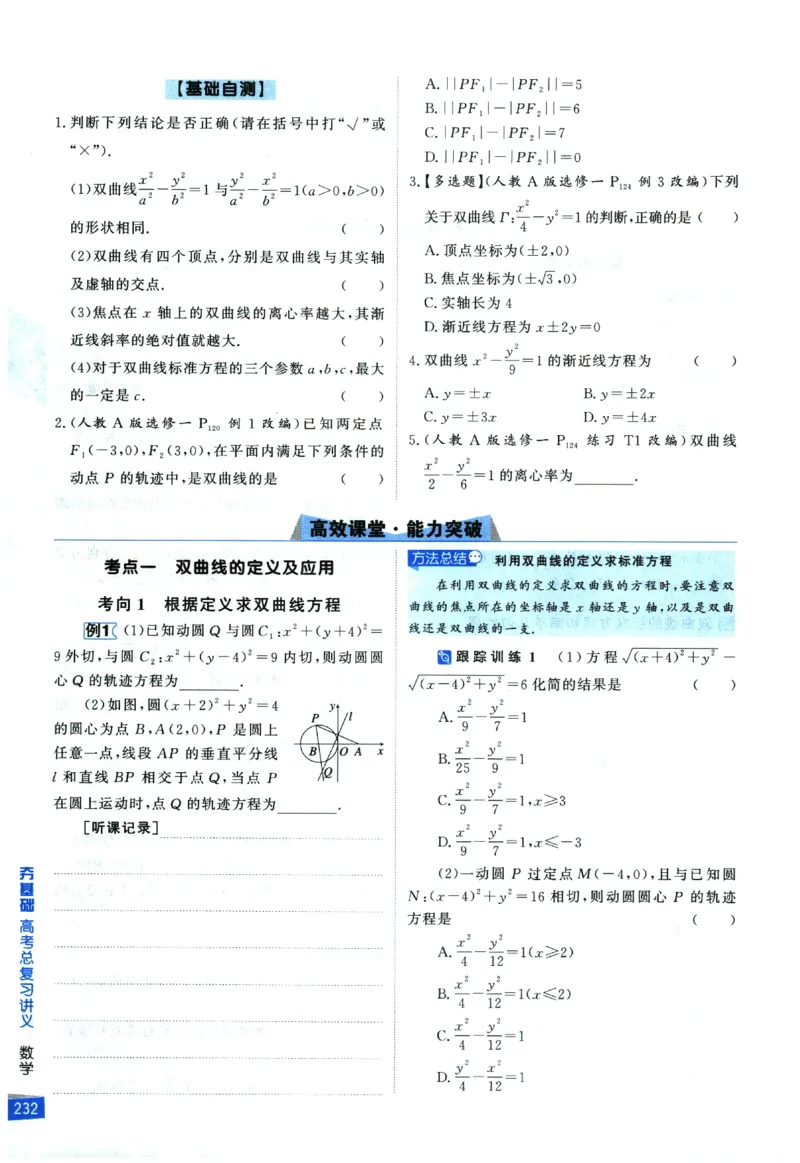 【基础自测】
1.判断下列结论是否正确(请在括号中打“√”或
“×”).
(1)双曲线x²/a²-y²/b²=1与y²/a²-x²/b²=1(a>0,b>0)
的形状相同. (　　)
(2)双曲线有四个顶点,分别是双曲线与其实轴
及虚轴的交点. (　　)
(3)焦点在 x 轴上的双曲线的离心率越大,其渐
近线斜率的绝对值就越大. (　　)
(4)对于双曲线标准方程的三个参数 a,b,c,最大
的一定是 c. (　　)
2.(人教 A 版选修一 P₁₂₀ 例 1 改编)已知两定点
F₁(-3,0),F₂(3,0),在平面内满足下列条件的
动点 P 的轨迹中,是双曲线的是 (　　)
A.||PF₁|-|PF₂||=5
B.||PF₁|-|PF₂||=6
C.|PF₁|-|PF₂|=7
D.||PF₁|-|PF₂||=0
3.【多选题】(人教 A 版选修一 P₁₂₄ 例 3 改编)下列
关于双曲线 Γ:x²/4-y²=1 的判断,正确的是 (　　)
A.顶点坐标为(±2,0)
B.焦点坐标为(±√3,0)
C.实轴长为 4
D.渐近线方程为 x±2y=0
4.双曲线 x²-y²/9=1 的渐近线方程为 (　　)
A.y=±x B.y=±2x
C.y=±3x D.y=±4x
5.(人教 A 版选修一 P₁₂₄ 练习 T1 改编)双曲线
x²/2-y²/6=1 的离心率为________.
高效课堂·能力突破
考点一　双曲线的定义及应用
考向 1　根据定义求双曲线方程
例1 (1)已知动圆 Q 与圆 C₁:x²+(y+4)²=
9 外切,与圆 C₂:x²+(y-4)²=9 内切,则动圆圆
心 Q 的轨迹方程为________.
(2)如图,圆(x+2)²+y²=4
的圆心为点 B,A(2,0),P 是圆上
任意一点,线段 AP 的垂直平分线
l 和直线 BP 相交于点 Q,当点 P
在圆上运动时,点 Q 的轨迹方程为________.
y
P
l
B
O
A
x
Q
[听课记录]
方法总结 利用双曲线的定义求标准方程
在利用双曲线的定义求双曲线的方程时,要注意双
曲线的焦点所在的坐标轴是 x 轴还是 y 轴,以及是双曲
线还是双曲线的一支.
跟踪训练 1　(1)方程 √((x+4)²+y²) -
√((x-4)²+y²)=6 化简的结果是 (　　)
A.x²/9-y²/7=1
B.x²/25-y²/9=1
C.x²/9-y²/7=1,x≥3
D.x²/9-y²/7=1,x≤-3
(2)一动圆 P 过定点 M(-4,0),且与已知圆
N:(x-4)²+y²=16 相切,则动圆圆心 P 的轨迹
方程是 (　　)
A.x²/4-y²/12=1(x≥2)
B.x²/4-y²/12=1(x≤2)
C.x²/4-y²/12=1
D.y²/4-x²/12=1
夯基础 高考总复习讲义 数学
232